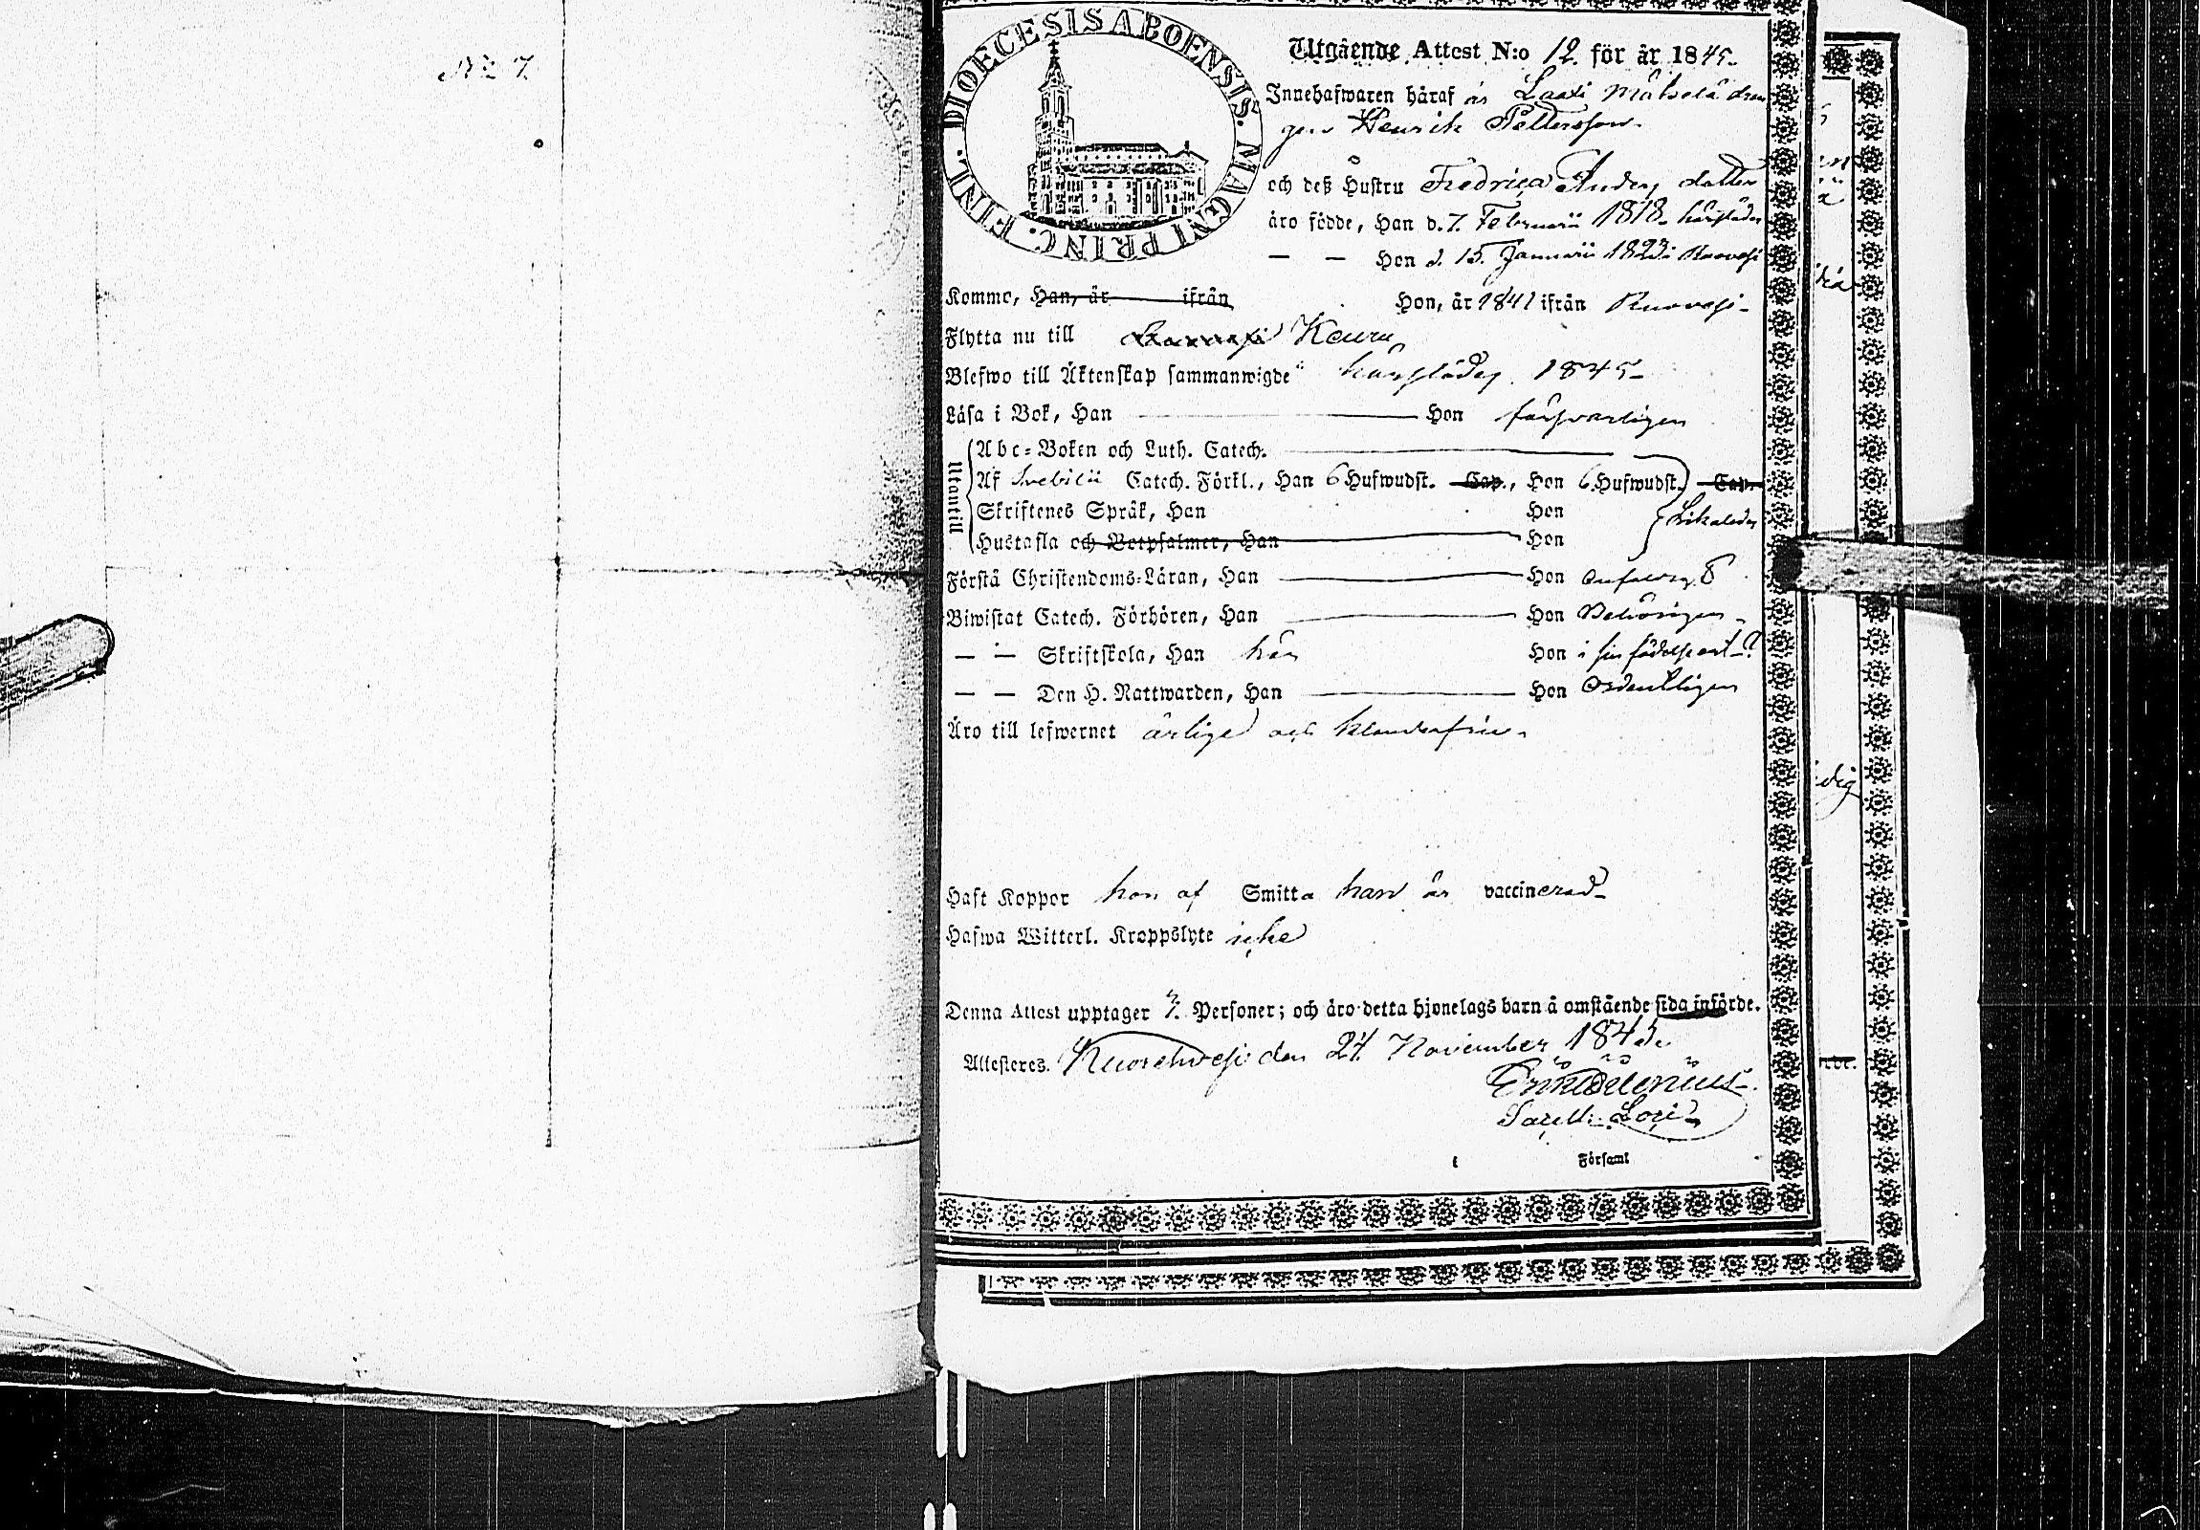 № 7.
DIOECESIS ABOENSIS. MAGNI PRINC. FINL.
Utgående Attest N:o 12. för år 1845.
Innehafwaren häraf är drän
gen Henrik Pettersson
och deß Hustru Fredrica Anders dotter
äro födde, Han d. 7. Februarii 1818. härstädes
— — Hon d. 15. Januarii 1823 i Ruovesi
Komme, Han, år ifrån Hon, år 1841 ifrån Ruovesi
Flytta nu till Keuru
Blefwo till Äktenskap sammanwigde härstädes 1845
Läsa i Bok, Han Hon försvarligen
Utantill
Abc-Boken och Luth. Catech.
Af Svebilii Catech. Förkl., Han 6 Hufwudst. Cap., Hon 6. Hufwudst. Cap.
Skriftenes Språk, Han Hon likaledes
Hustafla och Botpsalmer, Han Hon
Förstå Christendoms-Läran, Han Hon
Biwistat Catech. Förhören, Han Hon Behörigen
— — Skriftskola, Han här Hon i sin födelseort
— — Den H. Nattwarden, Han Hon Ordentligen
Äro till lefwernet ärlige och klanderfrie
Haft Koppor hon af Smitta han är vaccinerad
Hafwa Witterl. Kroppslyte icke
Denna Attest upptager Personer; och äro detta hjonelags barn å omstående sida införde.
Attesteres. Kuorehvesi den 24. November 1845.
Sacell. Loci
Församl
dig